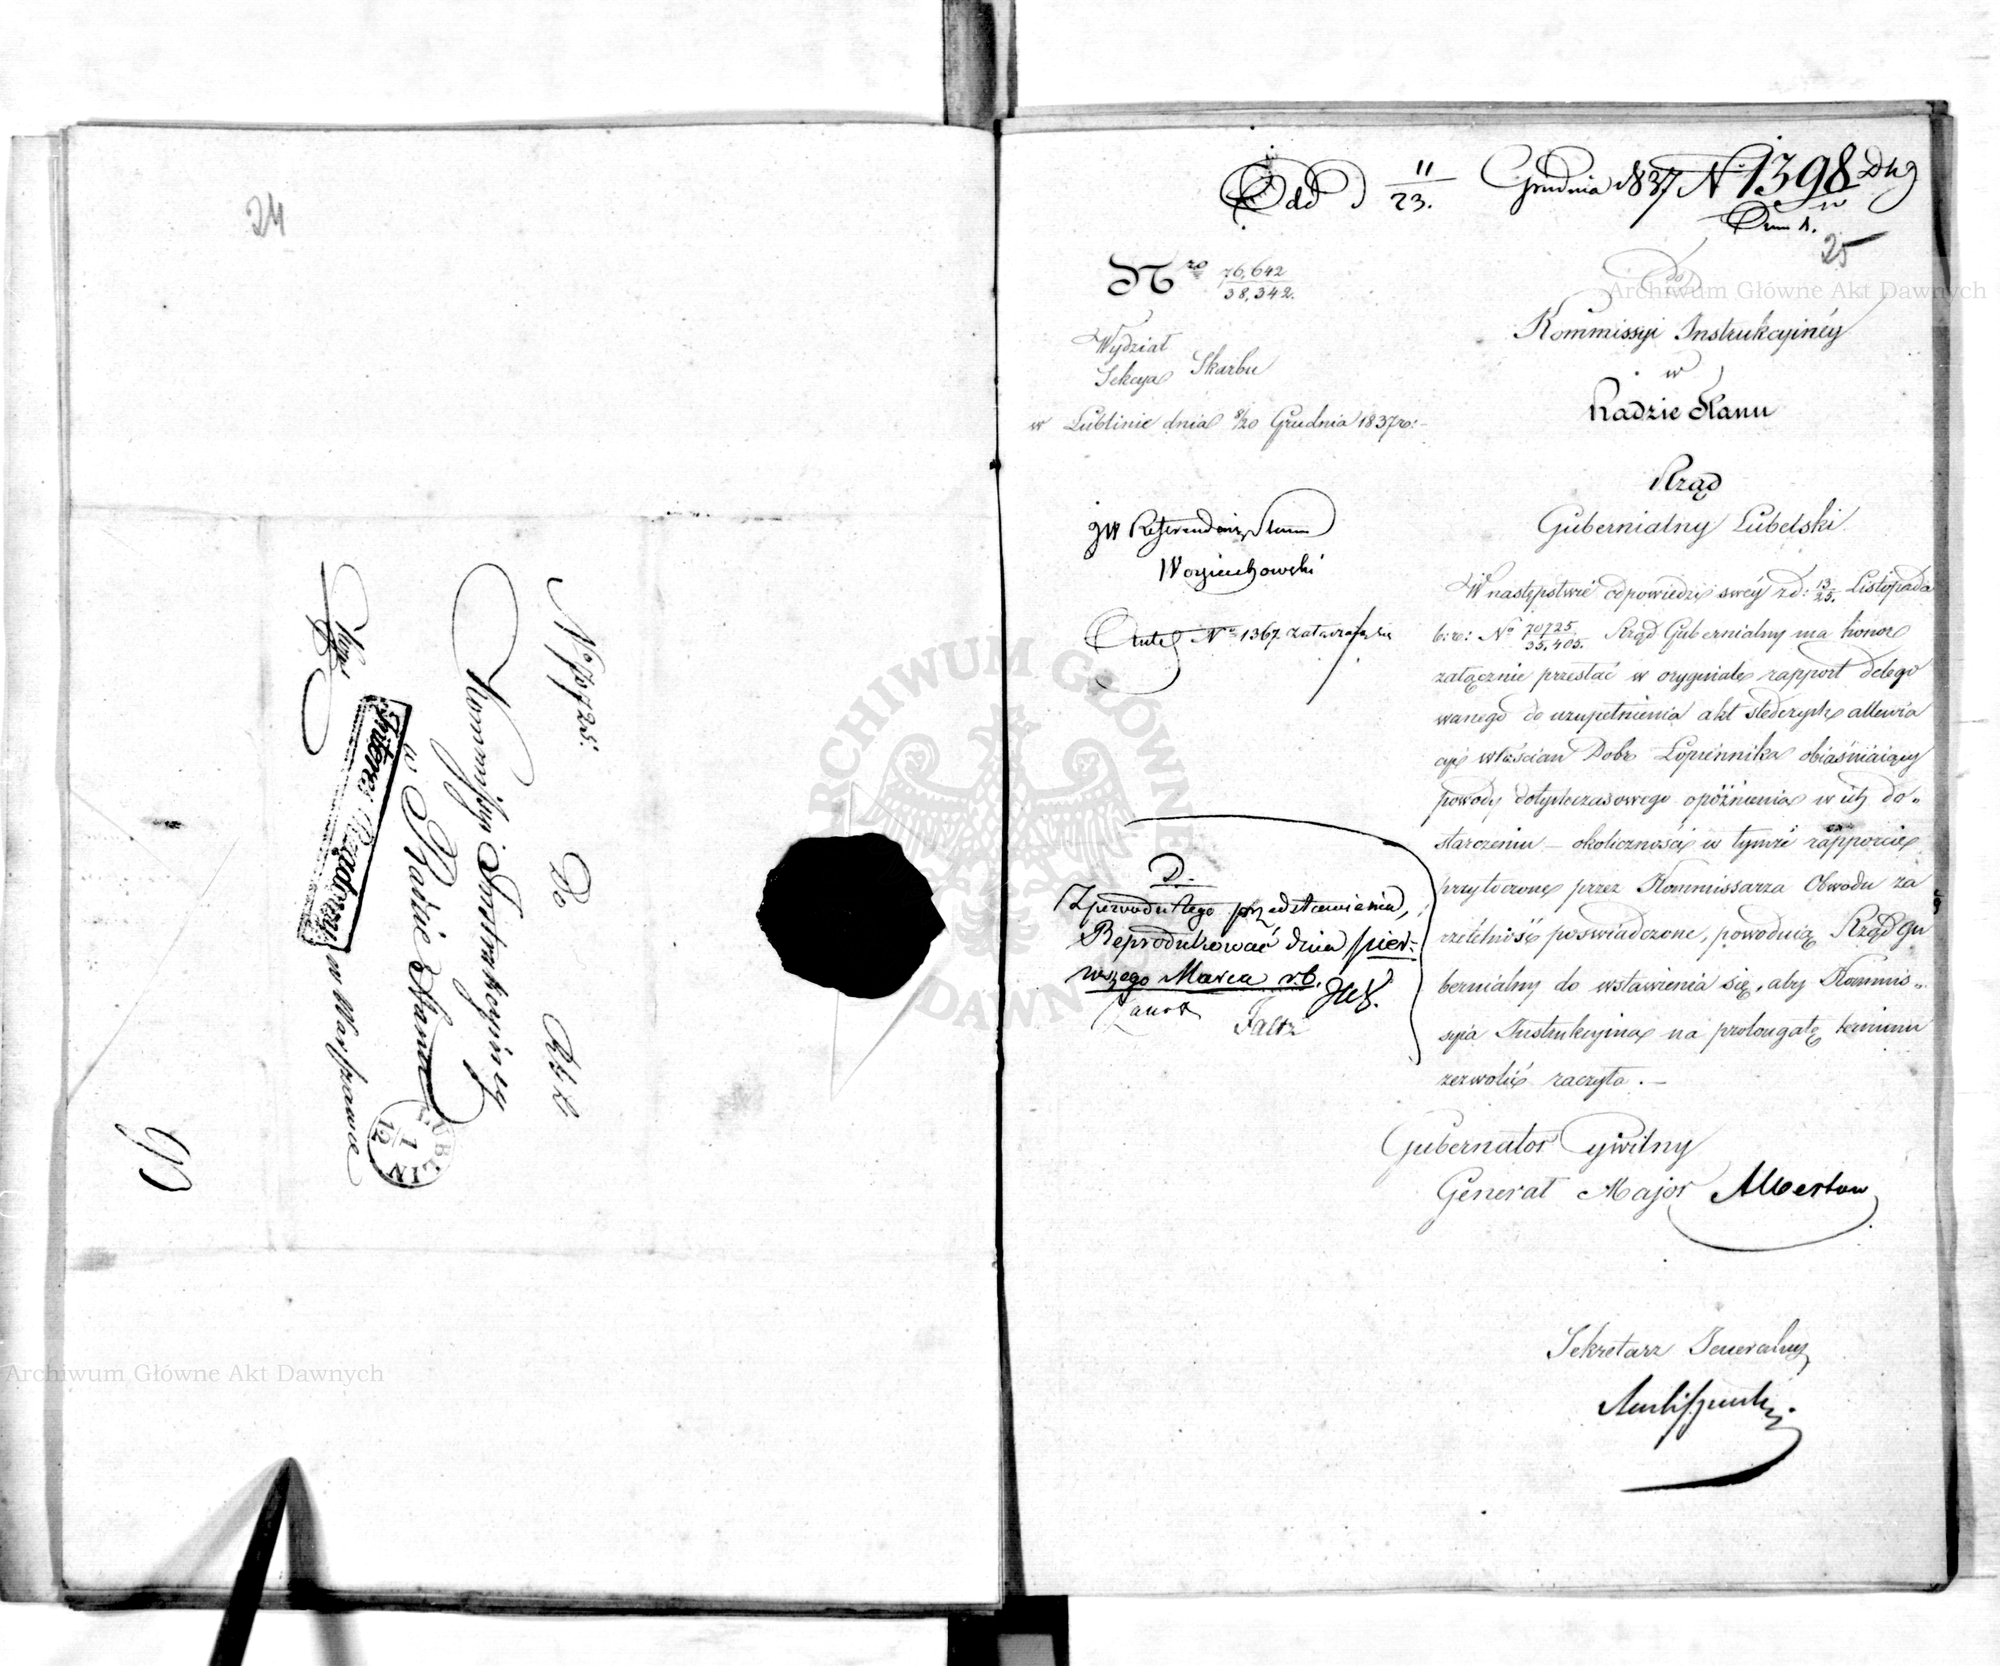 24
No 70725.
Do
Kommissyi Instrukcyiney
w Radzie Stanu
w Warszawie
Interes Rządowy
LUBLIN
1
12
Odd 11/23. Grudnia 1837 N. 1398
25
Nro 76,642/38,342.
Wydział
Sekcya Skarbu
w Lublinie dnia 8/20 Grudnia 1837 ro:
do
Kommissyi Instrukcyinéy
w
Radzie Stanu
Rząd
Gubernialny Lubelski
JW Referendarz Stanu
Woyciechowski
No 1367 załączają się
W następstwie odpowiedzi swéy z d: 13/25. Listopada
b: r: No 70725/35,405. Rząd Gubernialny ma honor
załącznie przesłać w oryginale rapport delego
wanego do uzupełnienia akt śledczych allewia
cyi włościan Dobr Łopiennika obiaśniaiący
powody dotychczasowego opóźnienia w ich do„
starczeniu – okoliczności w tymże rapporcie
przytoczone przez Kommissarza Obwodu za
rzetelność poswiadczone, powoduią Rząd Gu
bernialny do wstawienia się, aby Kommis„
syia Instrukcyina na prolongatę terminu
zezwolić raczyła. —
D.
Z powodu tego przedstawienia,
Reprodukować dnia pier-
wszego Marca r. b.
Faltz
Gubernator Cywilny
Generał Major Albertow
Sekretarz Jeneralny
ARCHIWUM GŁÓWNE
AKT DAWNYCH
Archiwum Główne Akt Dawnych
Archiwum Główne Akt Dawnych